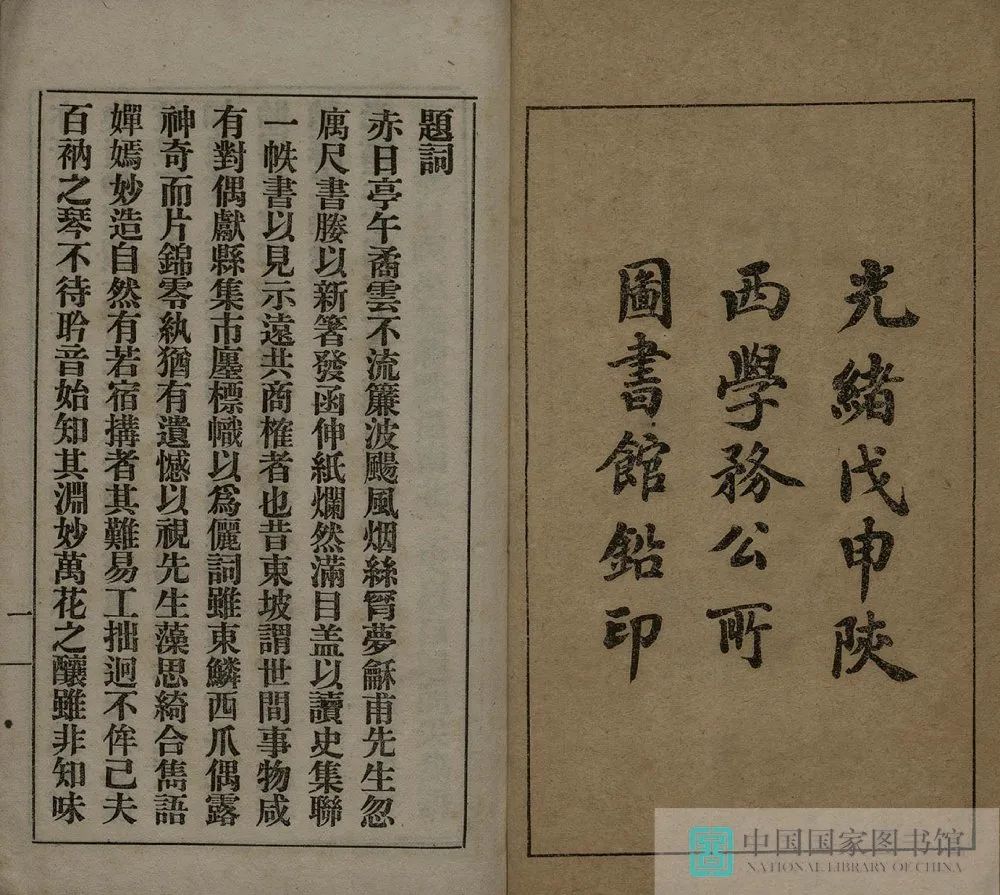 光緒戊申陝
西學務公所
圖書館鉛印
題詞
赤日亭午矞雲不流簾波颺風烟絲胃夢龢甫先生忽
寓尺書媵以新箸發函伸紙爛然滿目盖以讀史集聯
一帙書以見示遠共商榷者也昔東坡謂世間事物咸
有對偶獻縣集市廛標幟以爲儷詞雖東鱗西爪偶露
神奇而片錦零紈猶有遺憾以視先生藻思綺合雋語
嬋嫣妙造自然有若宿搆者其難易工拙迥不侔已夫
百衲之琴不待聆音始知其淵妙萬花之釀雖非知味
一
中国国家图书馆
NATIONAL LIBRARY OF CHINA